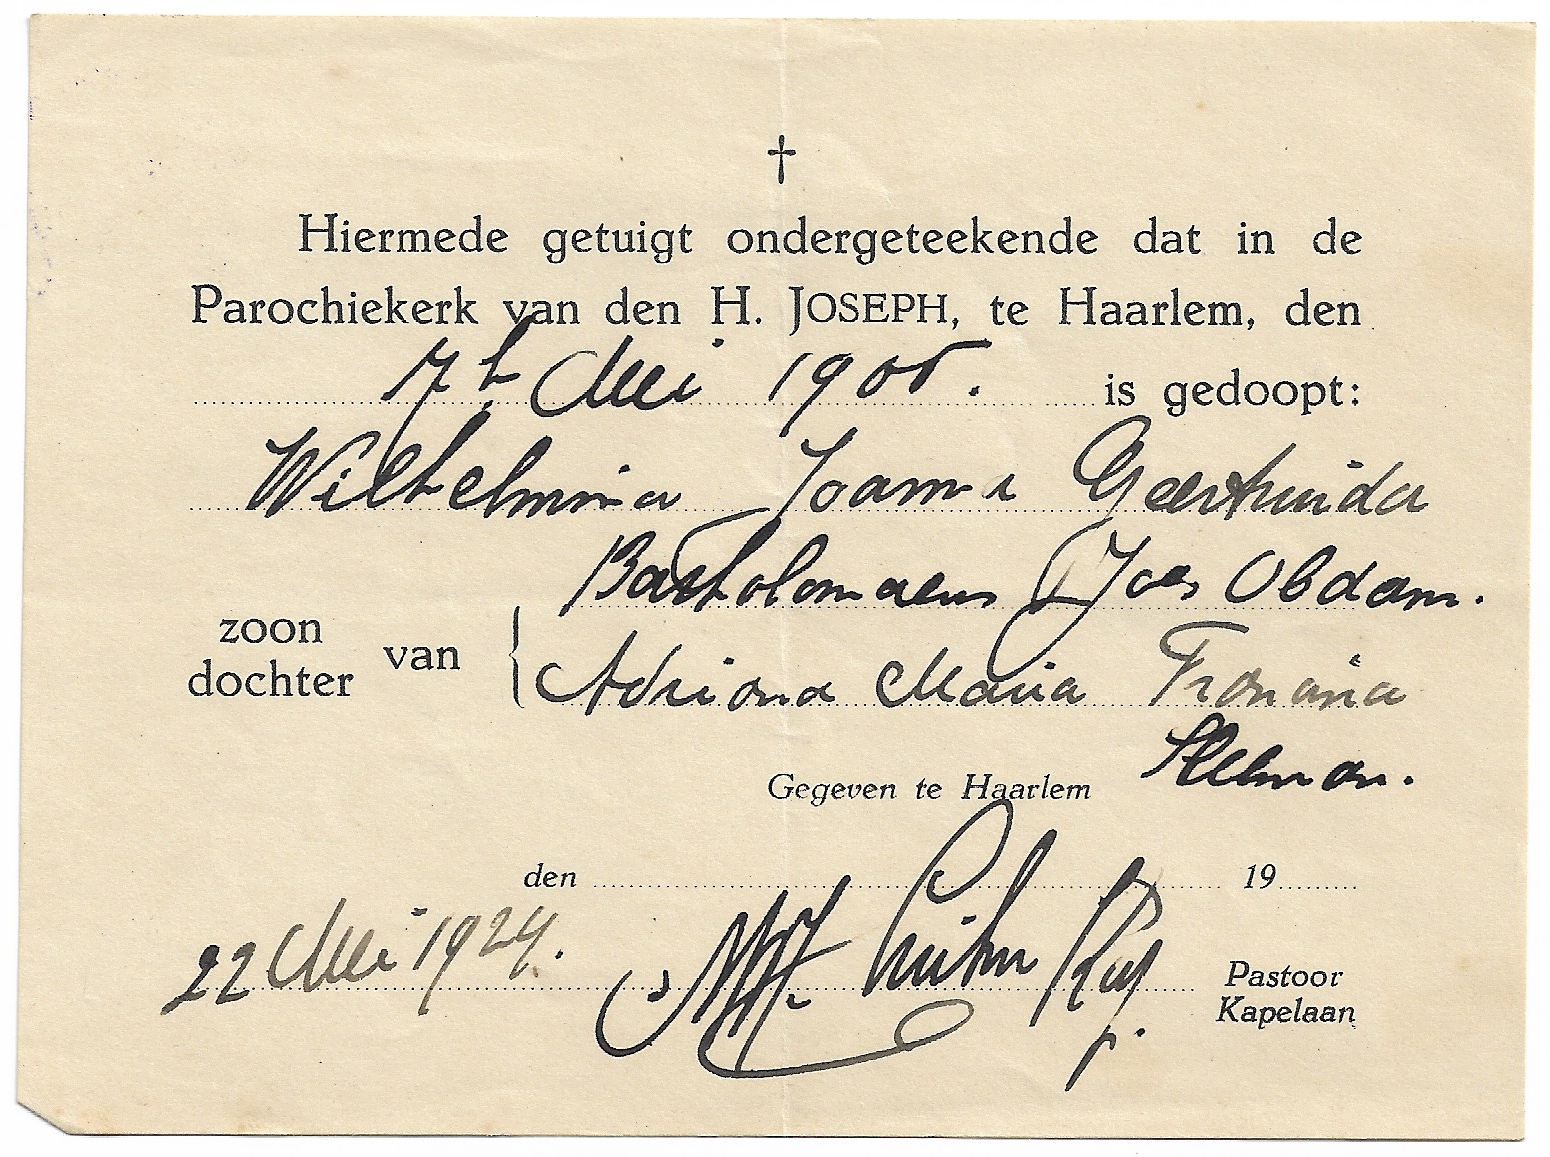 †
Hiermede getuigt ondergeteekende dat in de
Parochiekerk van den H. JOSEPH, te Haarlem, den
Mei is gedoopt:
Wilhelmina Joanna Geertruida
Bartholomaeus Joes Obdam.
zoon
dochter van
Adriana Maria
Gegeven te Haarlem
den 19
22 Mei 1924.
Pastoor
Kapelaan